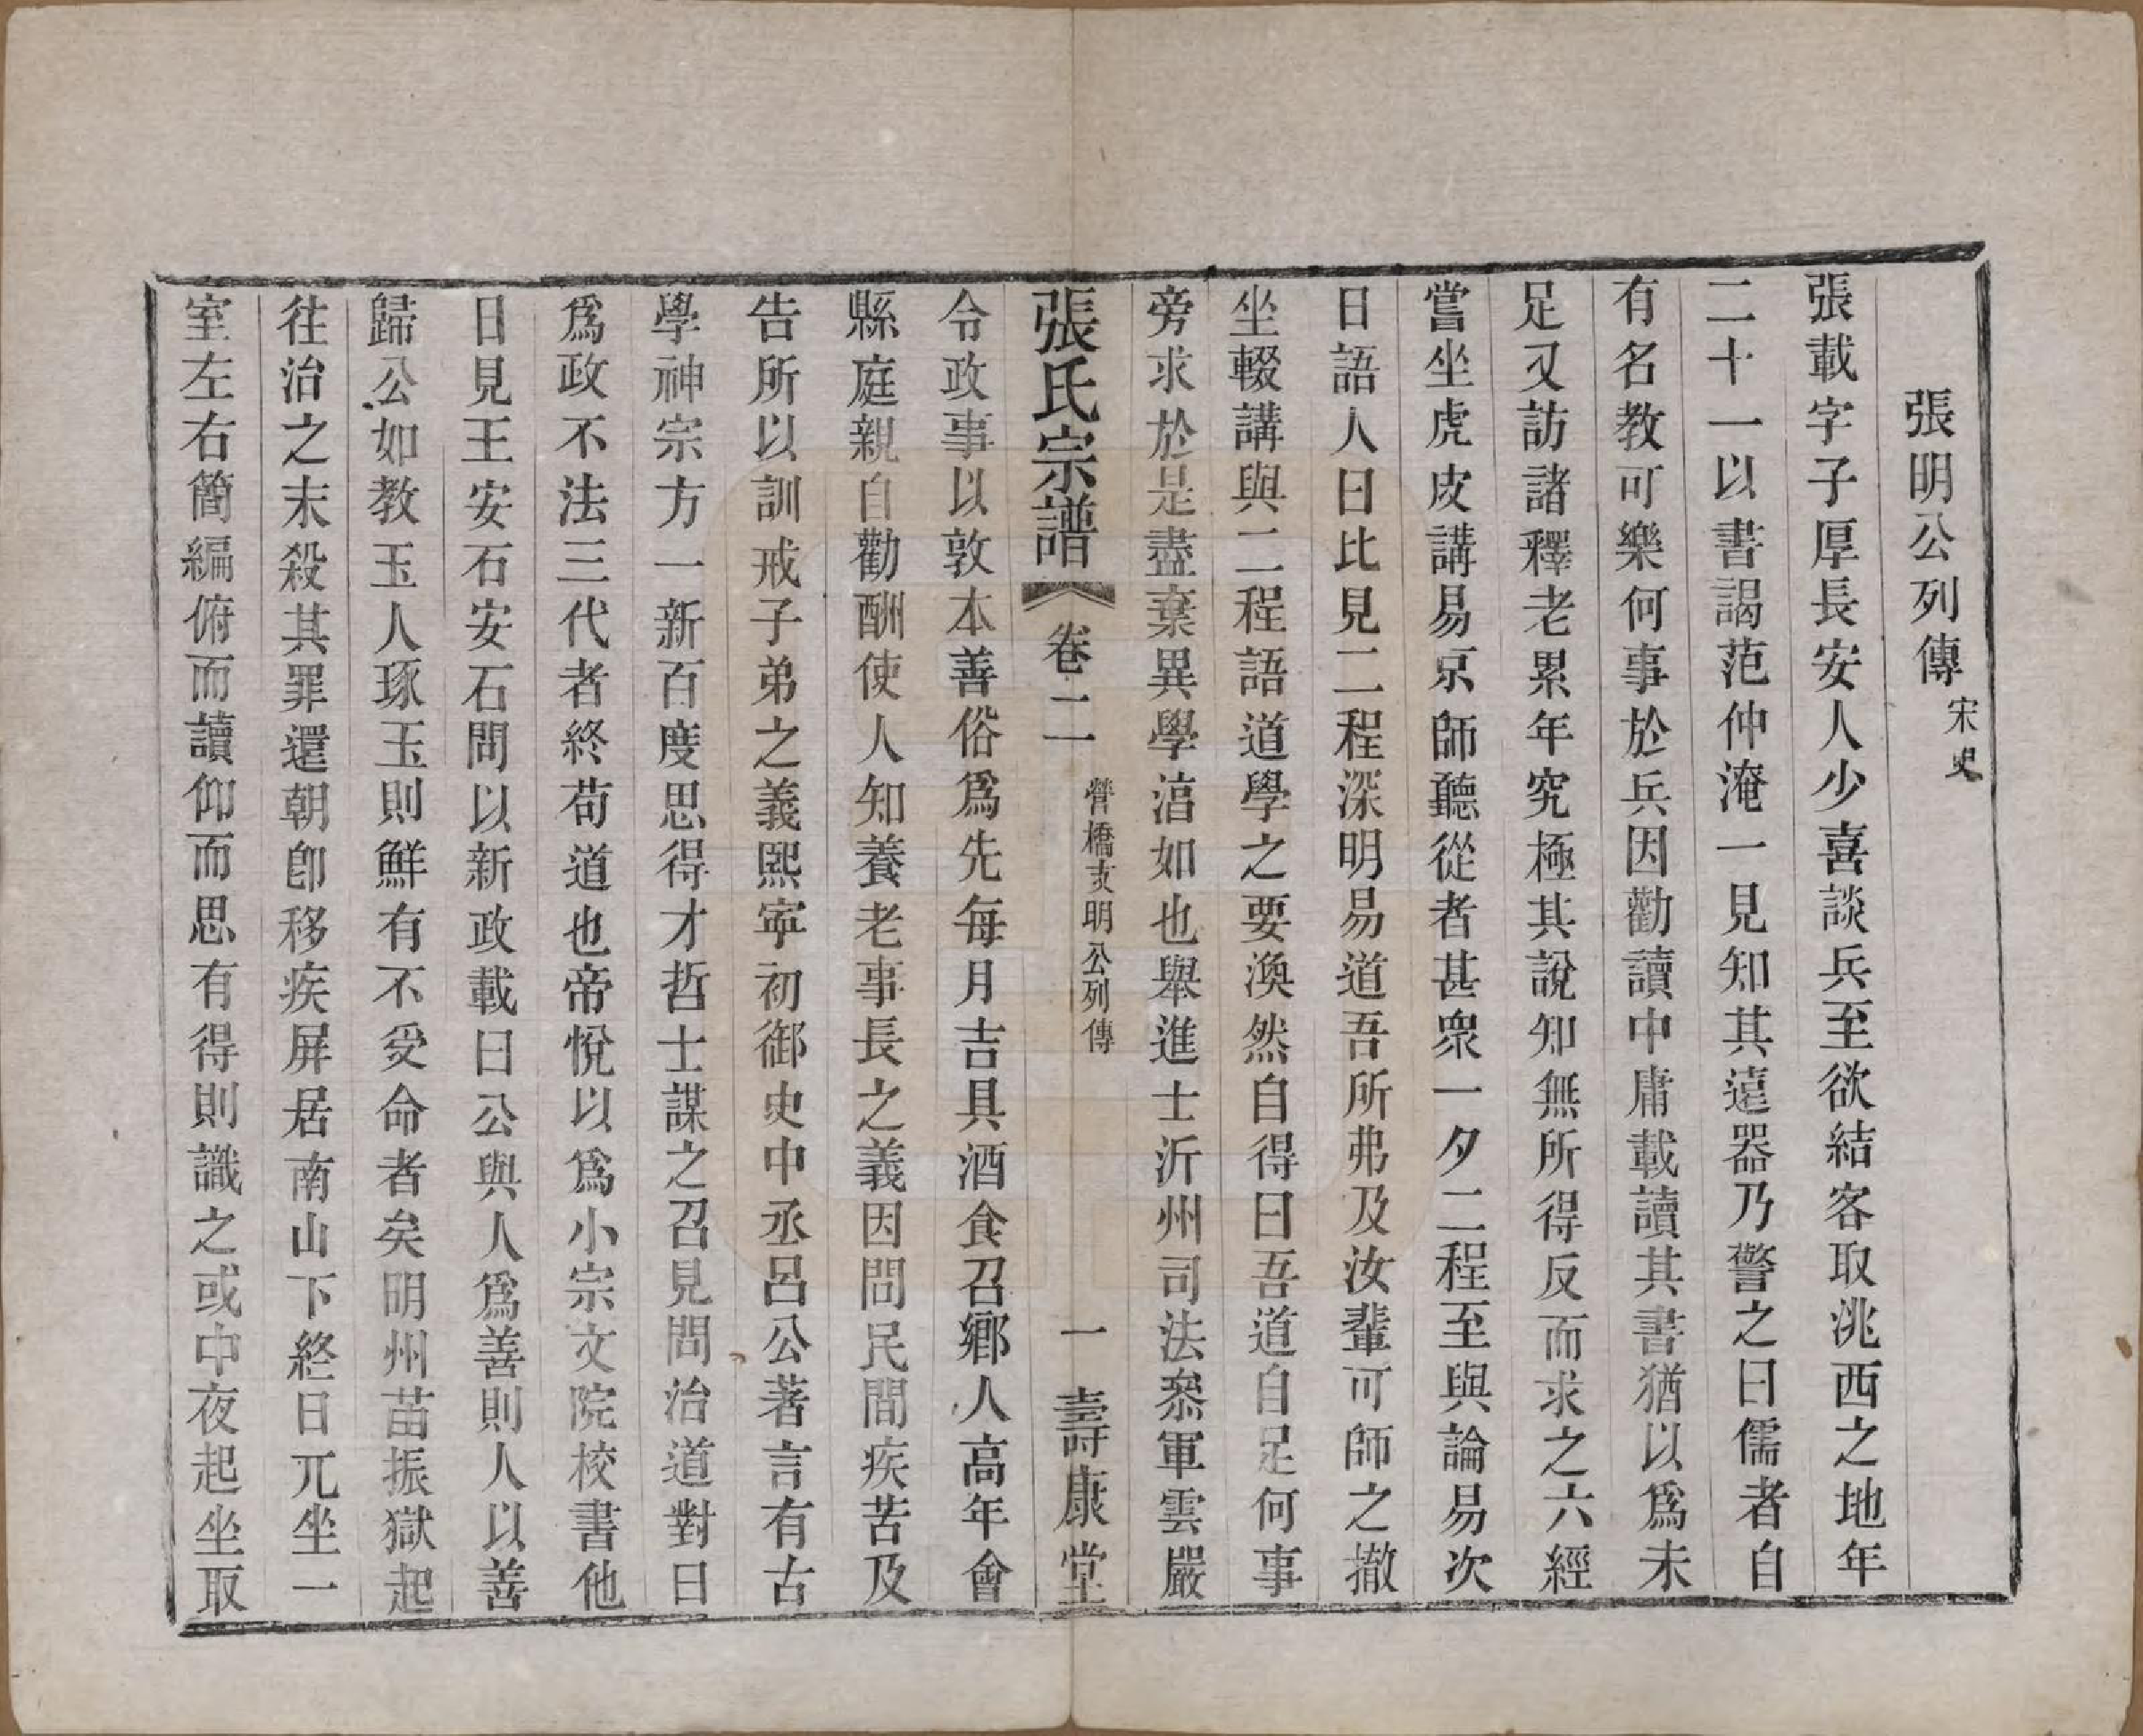 張明公列傳宋史
張載字子厚長安人少喜談兵至欲結客取洮西之地年
二十一以書謁范仲淹一見知其遠器乃警之曰儒者自
有名教可樂何事於兵因勸讀中庸載讀其書猶以爲未
足又訪諸釋老累年究極其說知無所得反而求之六經
嘗坐虎皮講易京師聽從者甚衆一夕二程至與論易次
日語人曰比見二程深明易道吾所弗及汝輩可師之撤
坐輟講與二程語道學之要渙然自得曰吾道自足何事
旁求於是盡棄異學湻如也舉進士沂州司法叅軍雲嚴
張氏宗譜 卷二 營橋支明公列傳 一 壽康堂
令政事以敦本善俗爲先每月吉具酒食召鄉人高年會
縣庭親自勸酬使人知養老事長之義因問民間疾苦及
告所以訓戒子弟之義熙寧初御史中丞呂公著言有古
學神宗方一新百度思得才哲士謀之召見問治道對曰
爲政不法三代者終苟道也帝悅以爲小宗文院校書他
日見王安石安石問以新政載曰公與人爲善則人以善
歸公如教玉人琢玉則鮮有不受命者矣明州苗振獄起
往治之末殺其罪還朝卽移疾屏居南山下終日兀坐一
室左右簡編俯而讀仰而思有得則識之或中夜起坐取